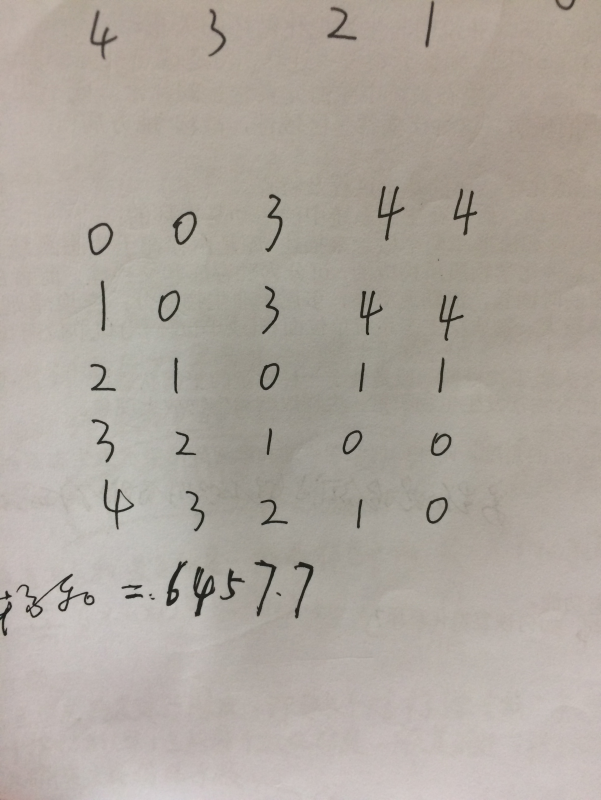 4 3 2 1
0 0 3 4 4
1 0 3 4 4
2 1 0 1 1
3 2 1 0 0
4 3 2 1 0
= 6457.7